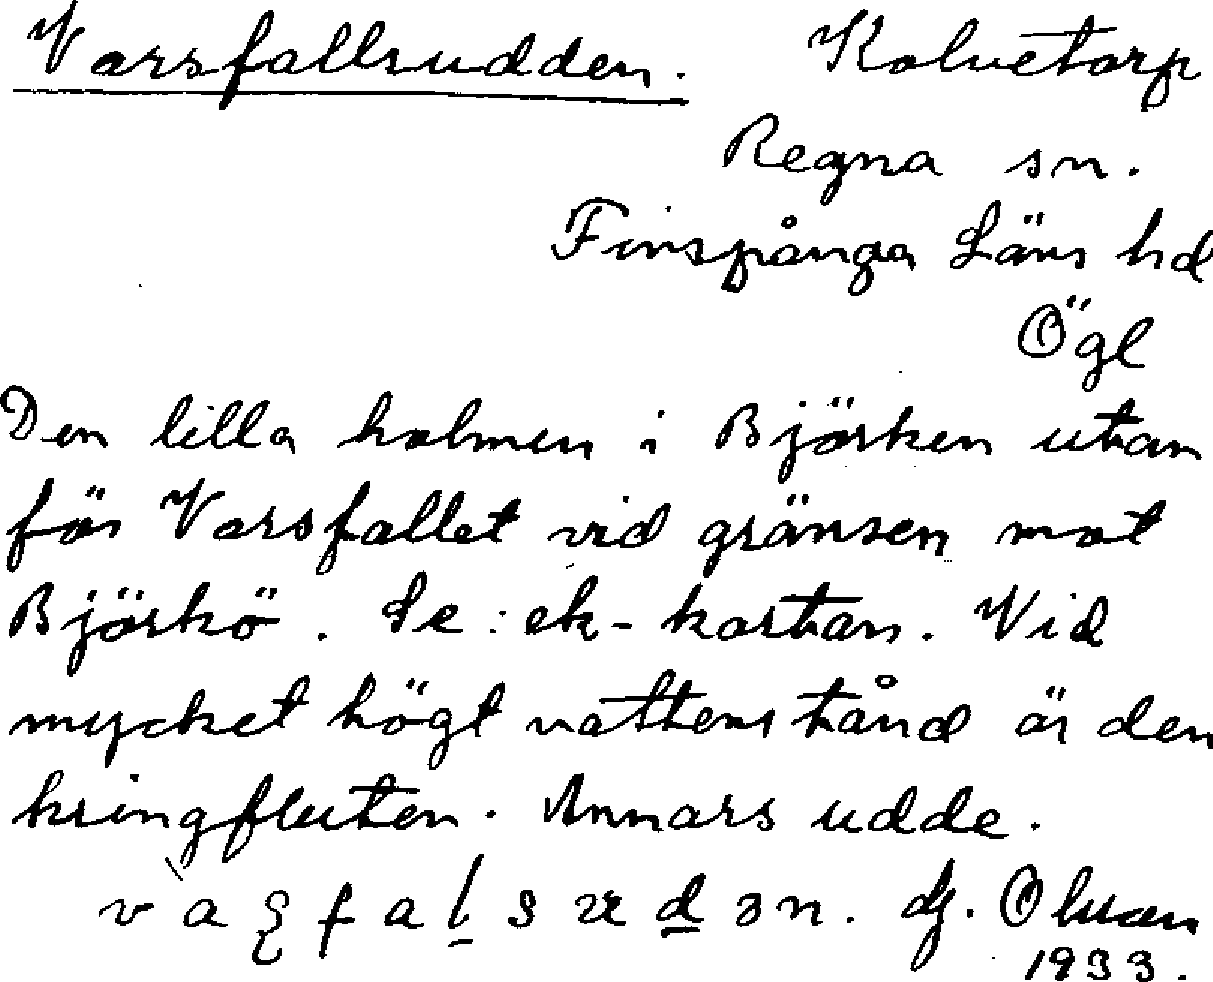 Varsfallsudden. Kalvetorp
Regna sn.
Finspånga Läns hd
Ögl
Den lilla holmen i Björken utan
för Varsfallet vid gränsen mot
Björkö. Se: ek-kartan. Vid
mycket högt vattenstånd är den
kringfluten. Annars udde.
1933.